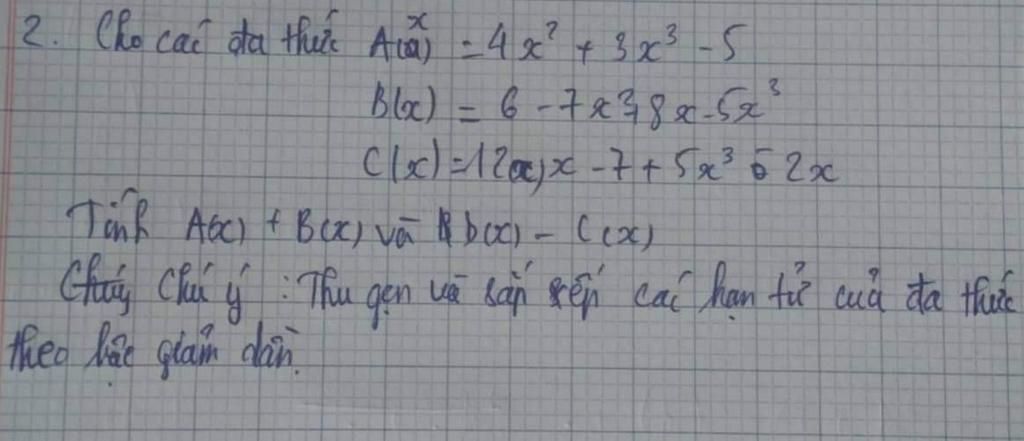 2. Cho các đa thức A(x) = 4x² + 3x³ - 5
B(x) = 6 - 7x² + 8x - 5x³
C(x) = 12 x - 7 + 5x³ 2x
Tính A(x) + B(x) và B(x) - C(x)
Chú ý : Thu gọn và sắp xếp các hạn tử của đa thức
theo bậc giảm dần.